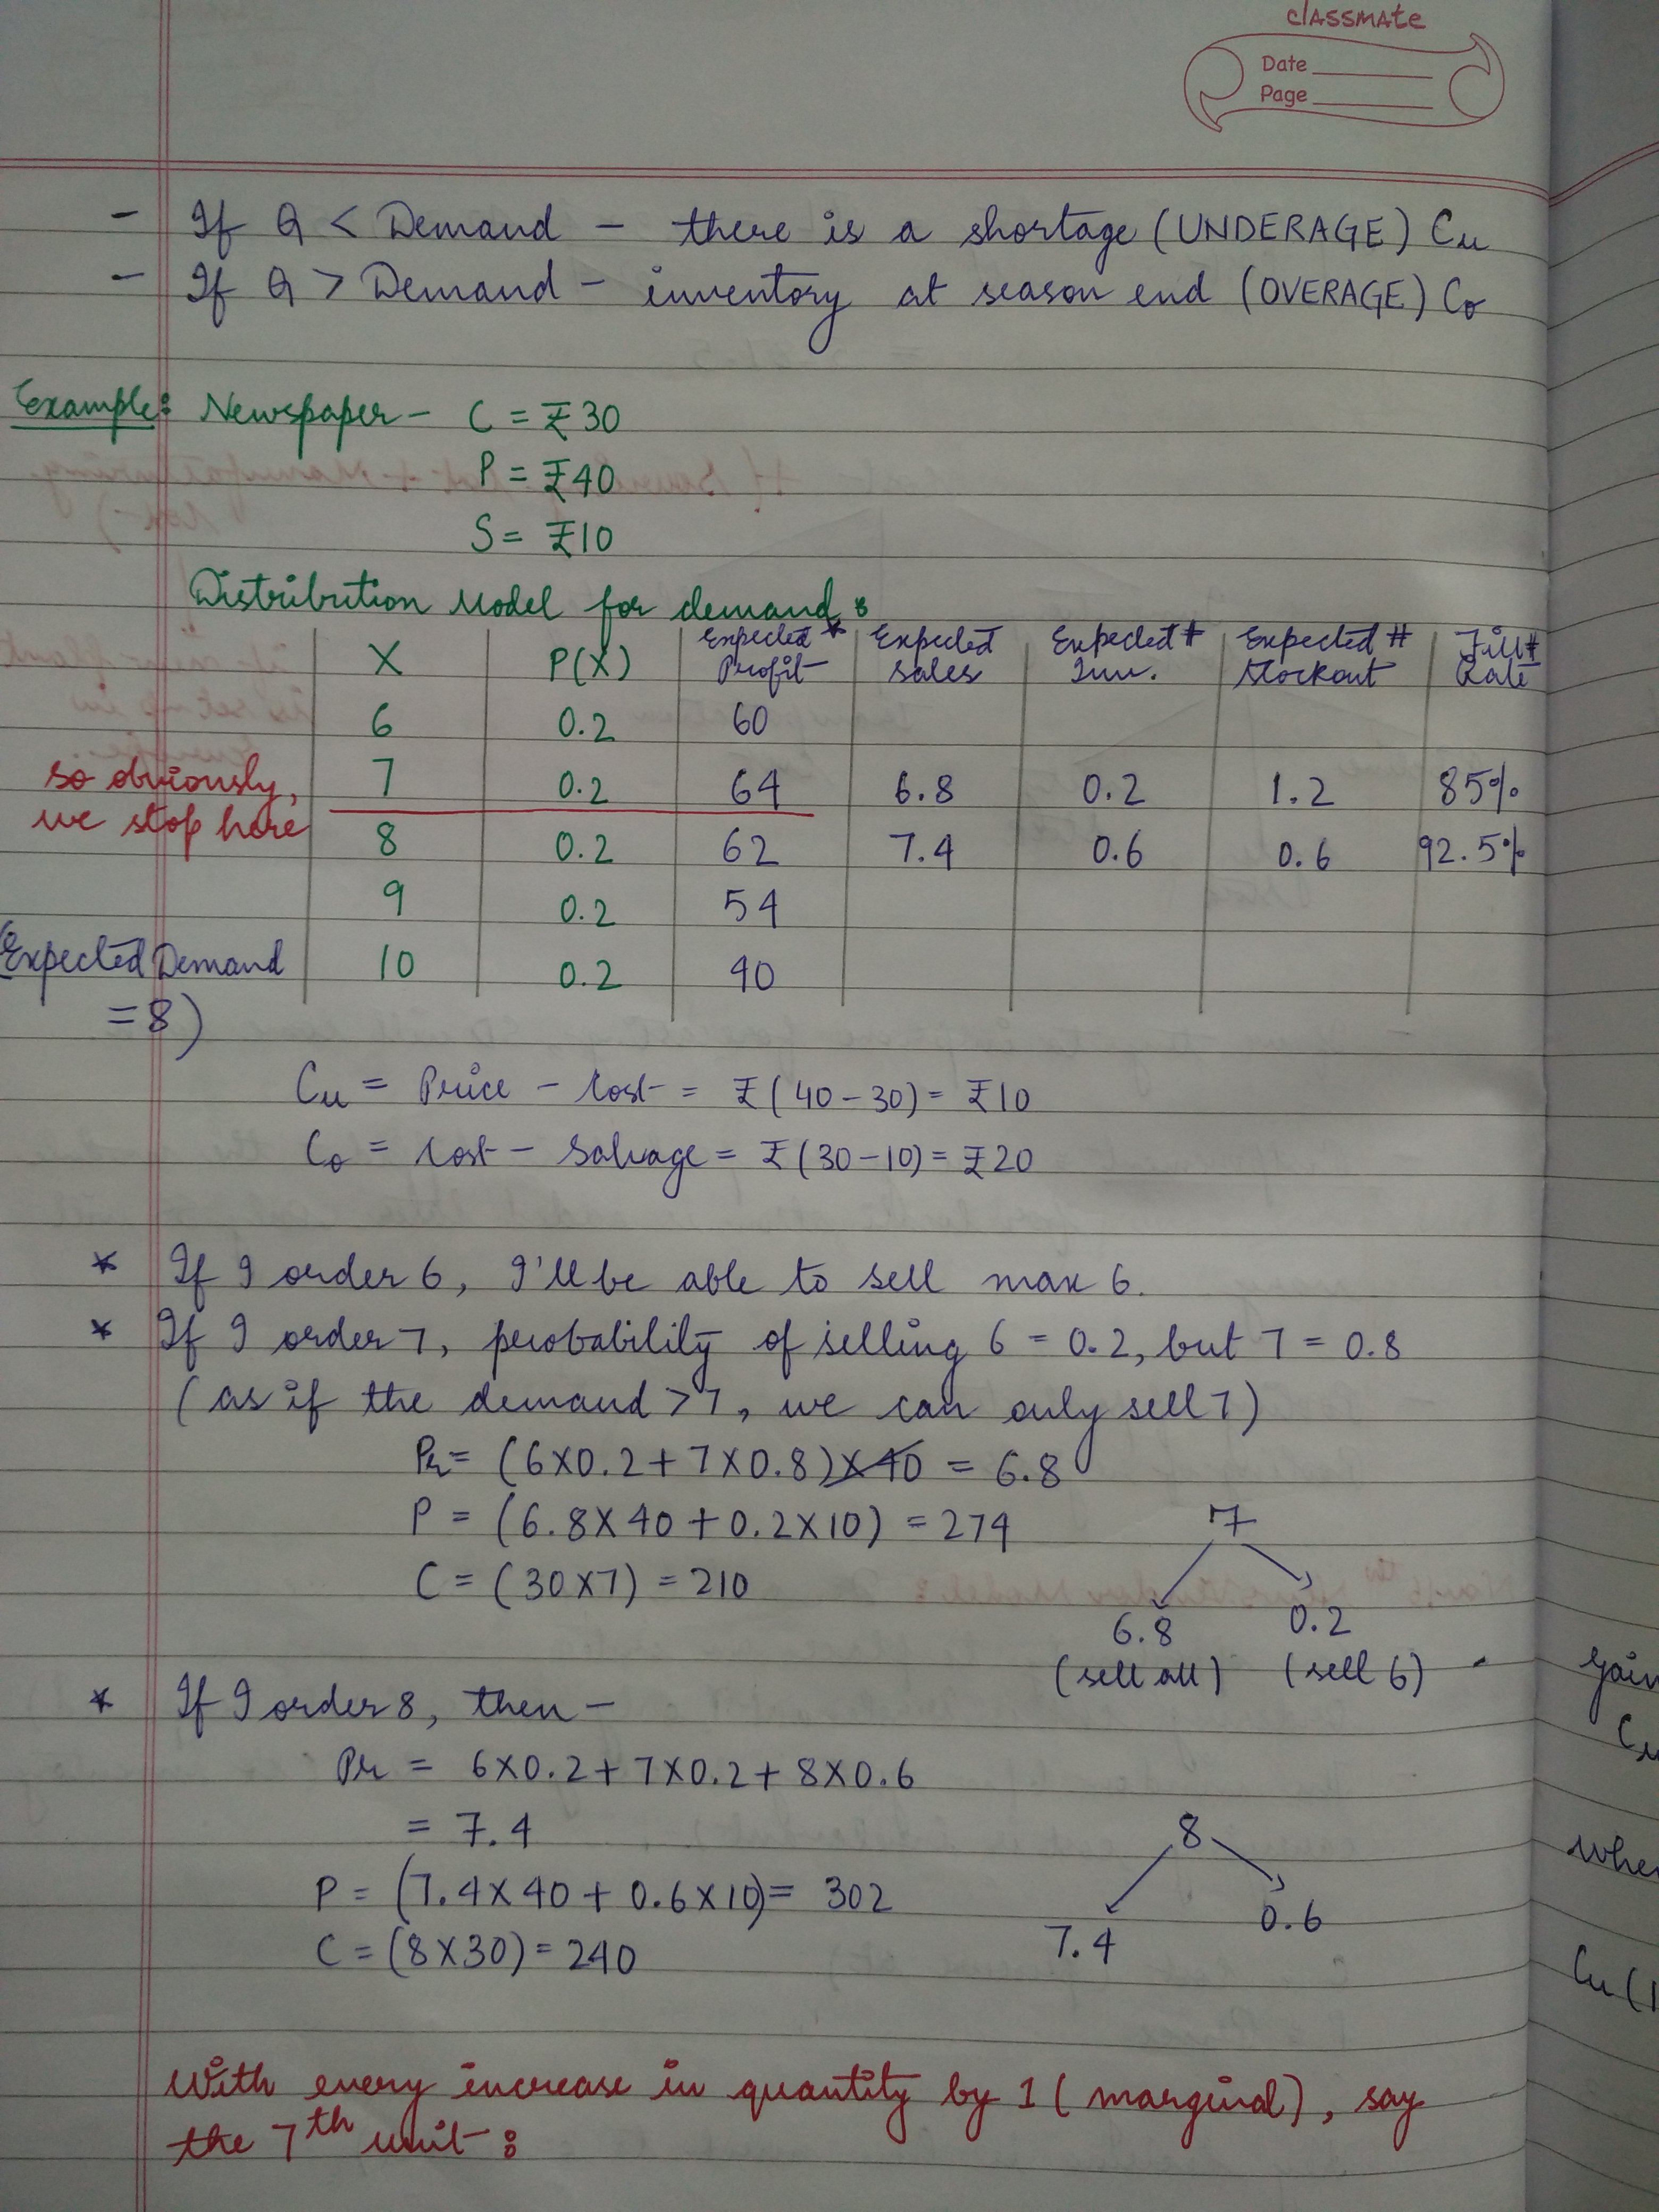 classmate
Date
Page
- If Q < Demand - there is a shortage (UNDERAGE) Cu
- If Q > Demand - inventory at season end (OVERAGE) Co
Example: Newspaper - C = ₹30
P = ₹40
S = ₹10
Distribution Model for demand:
X P(X) Expected * Profit Expected Sales Expected # Inv. Expected # Stockout Fill # Rate
6 0.2 60
so obviously, we stop here
7 0.2 64 6.8 0.2 1.2 85%
8 0.2 62 7.4 0.6 0.6 92.5%
9 0.2 54
(Expected Demand = 8)
10 0.2 40
Cu = Price - Cost = ₹(40-30) = ₹10
Co = Cost - Salvage = ₹(30-10) = ₹20
* If I order 6, I'll be able to sell max 6.
* If I order 7, probability of selling 6 = 0.2, but 7 = 0.8
(as if the demand > 7, we can only sell 7)
Pr = (6X0.2+7X0.8)X40 = 6.8
P = (6.8X40+0.2X10) = 274
C = (30X7) = 210
7
6.8 0.2
(sell all) (sell 6)
* If I order 8, then -
Pr = 6X0.2+7X0.2+8X0.6
= 7.4
P = (7.4X40+0.6X10) = 302
C = (8X30) = 240
8
7.4 0.6
With every increase in quantity by 1 (marginal), say
the 7th unit:
Cu (1